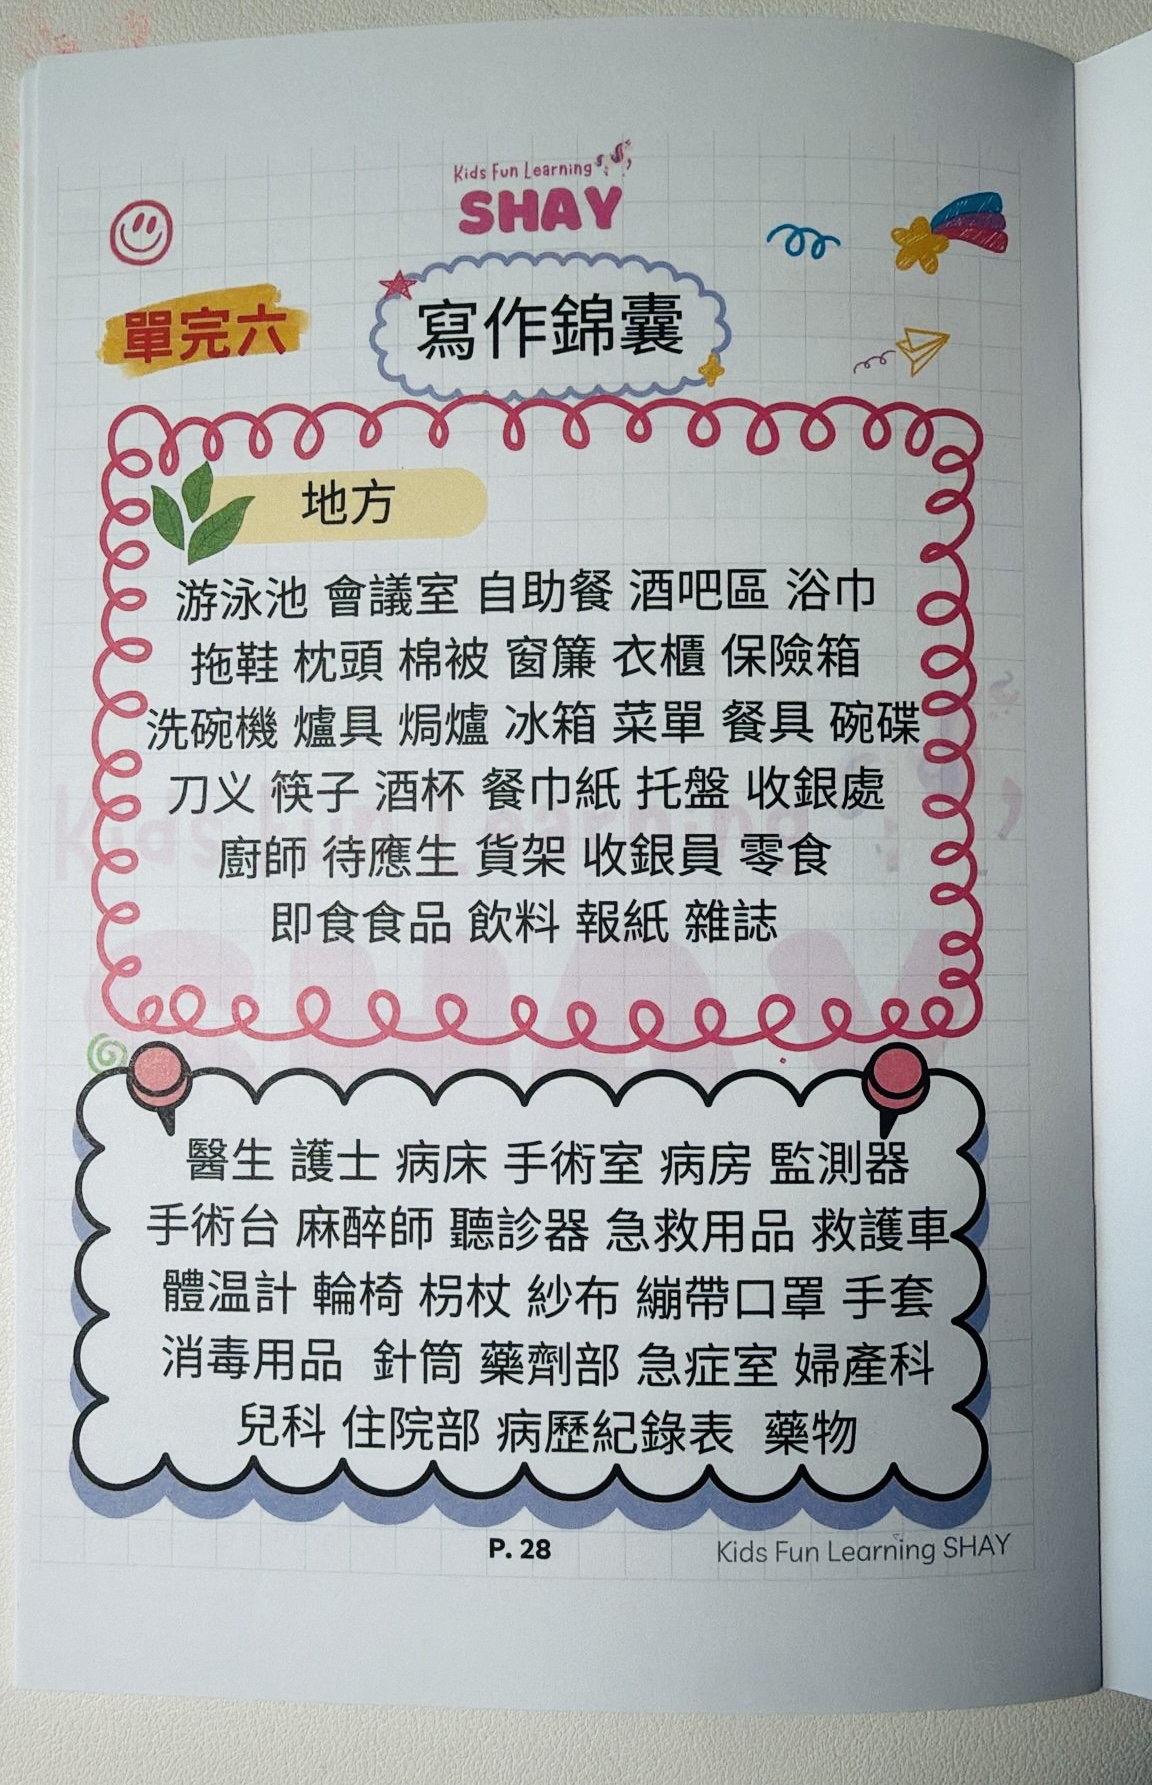 Kids Fun Learning
SHAY
單完六
寫作錦囊
地方
游泳池 會議室 自助餐 酒吧區 浴巾
拖鞋 枕頭 棉被 窗簾 衣櫃 保險箱
洗碗機 爐具 焗爐 冰箱 菜單 餐具 碗碟
刀义 筷子 酒杯 餐巾紙 托盤 收銀處
廚師 待應生 貨架 收銀員 零食
即食食品 飲料 報紙 雜誌
醫生 護士 病床 手術室 病房 監測器
手術台 麻醉師 聽診器 急救用品 救護車
體温計 輪椅 柺杖 紗布 繃帶口罩 手套
消毒用品 針筒 藥劑部 急症室 婦產科
兒科 住院部 病歷紀錄表 藥物
P. 28
Kids Fun Learning SHAY